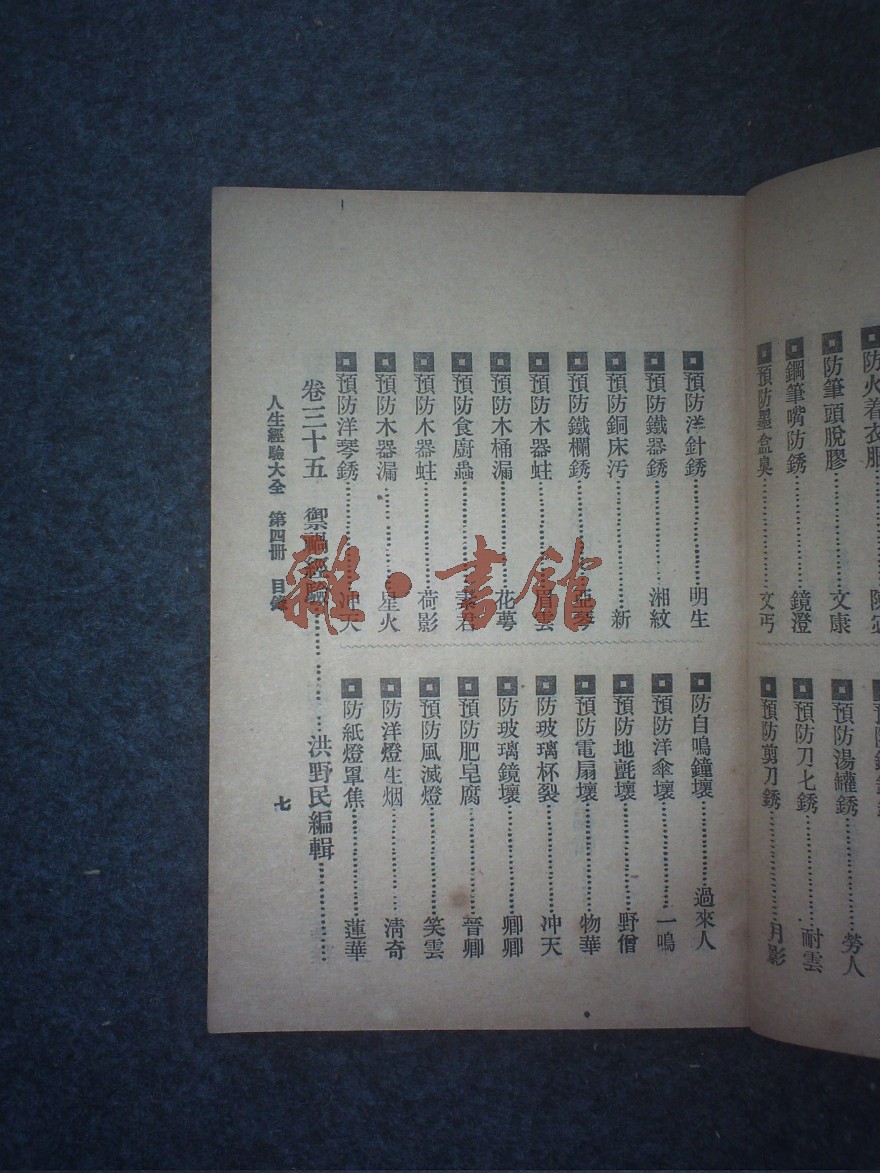 防火着衣服
防筆頭脫膠……文康
鋼筆嘴防銹……鏡澄
預防墨盒臭……文丐
預防湯罐銹……勞人
預防刀七銹……耐雲
預防剪刀銹……月影
預防洋針銹……明生
預防鐵器銹……湘紋
預防銅床汚……新
預防鐵欄銹……亞琴
預防木器蛀……眉雲
預防木桶漏……花萼
預防食廚蟲……素君
預防木器蛀……荷影
預防木器漏……星火
預防洋琴銹……冲天
防自鳴鐘壞……過來人
預防洋傘壞……一鳴
預防地氈壞……野僧
預防電扇壞……物華
防玻璃杯裂……冲天
防玻璃鏡壞……卿卿
預防肥皂腐……晉卿
預防風滅燈……笑雲
防洋燈生烟……清奇
防紙燈罩焦……蓮華
卷三十五 禦禍經驗……洪野民編輯……
人生經驗大全 第四冊 目錄 七
雜·書館